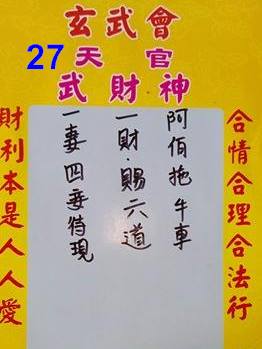 玄武會
27天官
武財神
合情合理合法行
阿伯拖牛車
一財·賜六道
一妻四妾待現
財利本是人人愛